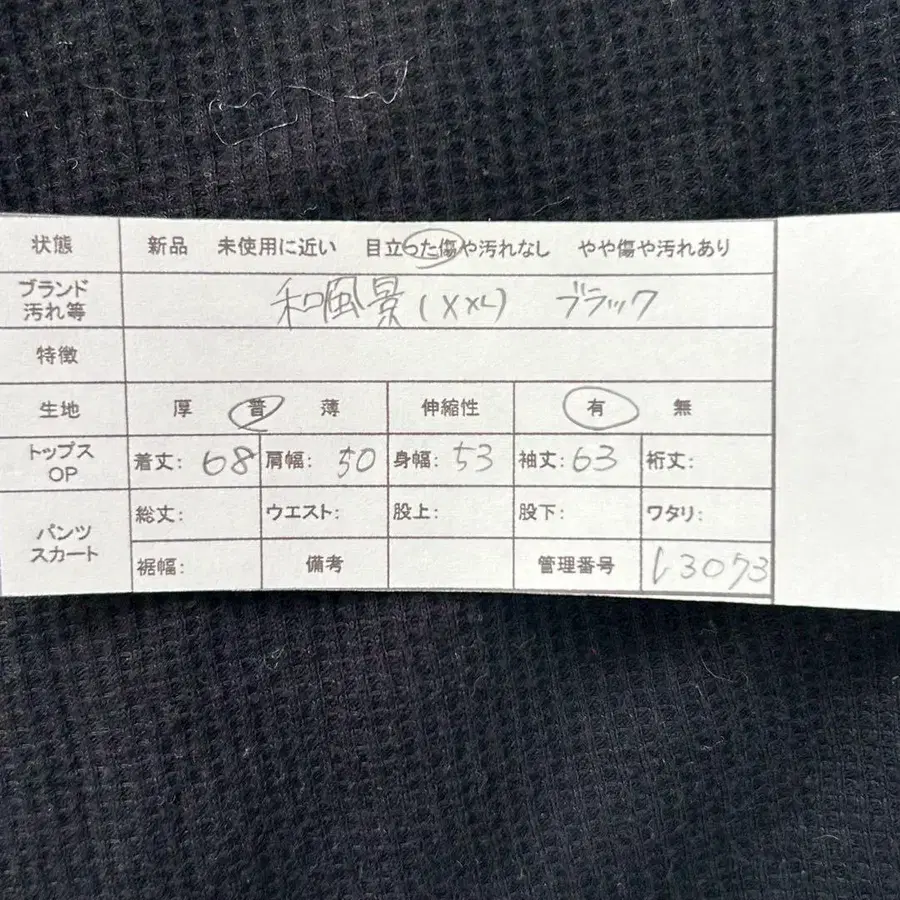 状態 新品 未使用に近い 目立った傷や汚れなし やや傷や汚れあり
ブランド
汚れ等 和風景(XXL) ブラック
特徴
生地 厚 普 薄 伸縮性 有 無
トップス
OP 着丈: 68 肩幅: 50 身幅: 53 袖丈: 63 裄丈:
パンツ
スカート 総丈: ウエスト: 股上: 股下: ワタリ:
裾幅: 備考 管理番号 L3073